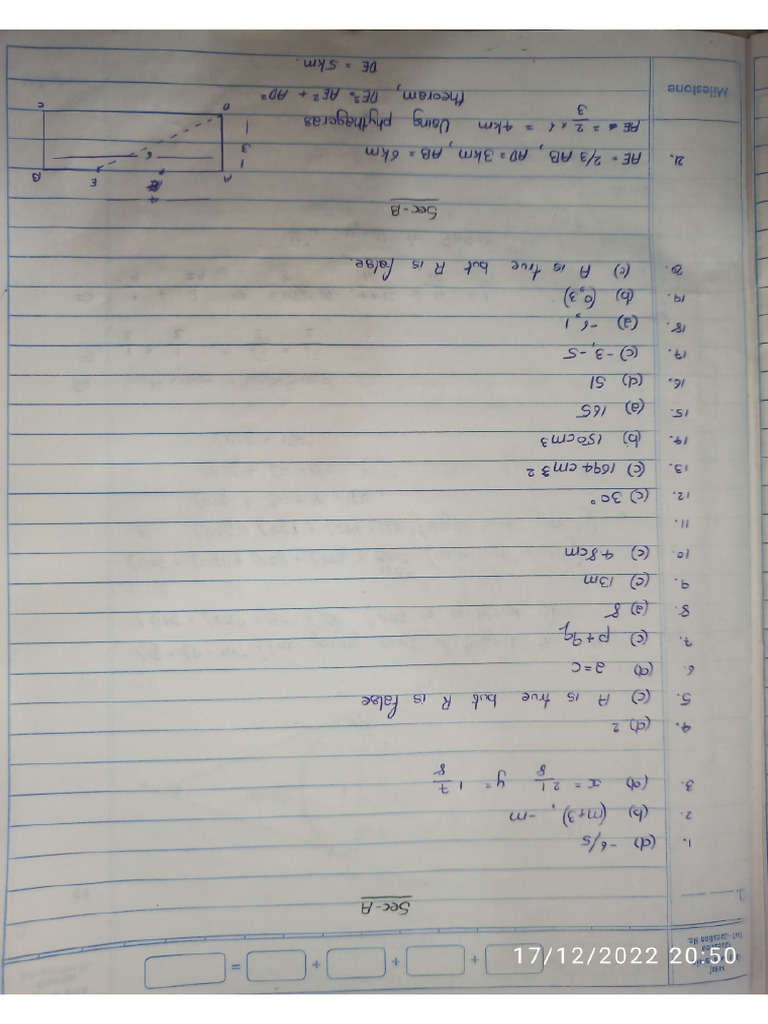 17/12/2022 20:50
Sec-A
1. (d) -6/5
2. (b) (m+3), -m
3. (d) x = 21/8 y = 17/8
4. (d) 2
5. (c) A is true but R is false
6. (d) a=c
7. (c) p+9q
8. (a) 8
9. (c) 13m
10. (c) 48cm
11.
12. (c) 30°
13. (c) 1694 cm3 2
14. (b) 150cm3
15. (a) 165
16. (d) 51
17. (c) -3, -5
18. (a) -6, 1
19. (b) (0,3)
20. (c) A is true but R is false.
Sec-B
21. AE = 2/3 AB, AD = 3km, AB = 6km
AE = 2/3 × 6 = 4km Using phythagoras
theoram, DE² = AE² + AD²
DE = 5km.
A E B
3 6
D C
4
Milestone